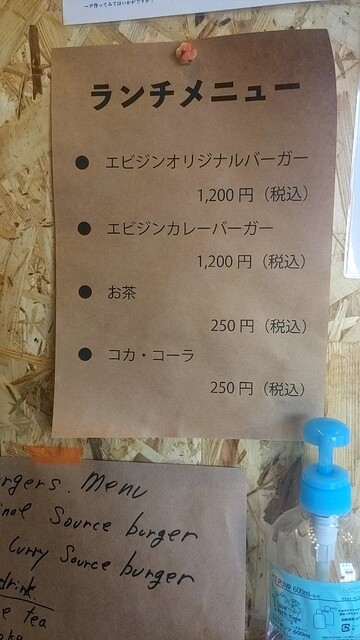 ランチメニュー
● エビジンオリジナルバーガー
1,200 円（税込）
● エビジンカレーバーガー
1,200 円（税込）
● お茶
250 円（税込）
● コカ・コーラ
250 円（税込）
rgers. menu
nal Source burger
Curry Source burger
drink
e tea
600ml